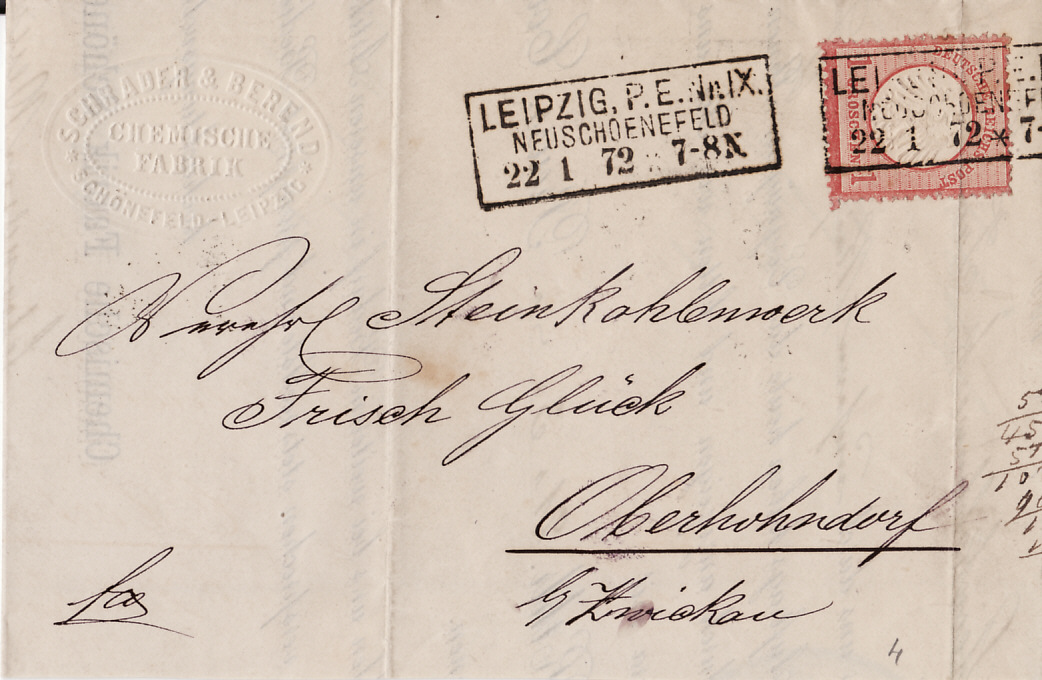 SCHRADER & BEREND
CHEMISCHE
FABRIK
SCHÖNEFELD-LEIPZIG
LEIPZIG. P. E. Nr. IX.
NEUSCHOENEFELD
22 1 72 * 7-8N
DEUTSCHE REICHS-POST
1 GROSCHEN 1
LEI P.E.
NEUSCHOENEFE
22 1 72 * 7-
Steinkohlenwerk
Frisch Glück
Oberhohndorf
b/Zwickau
fco
4